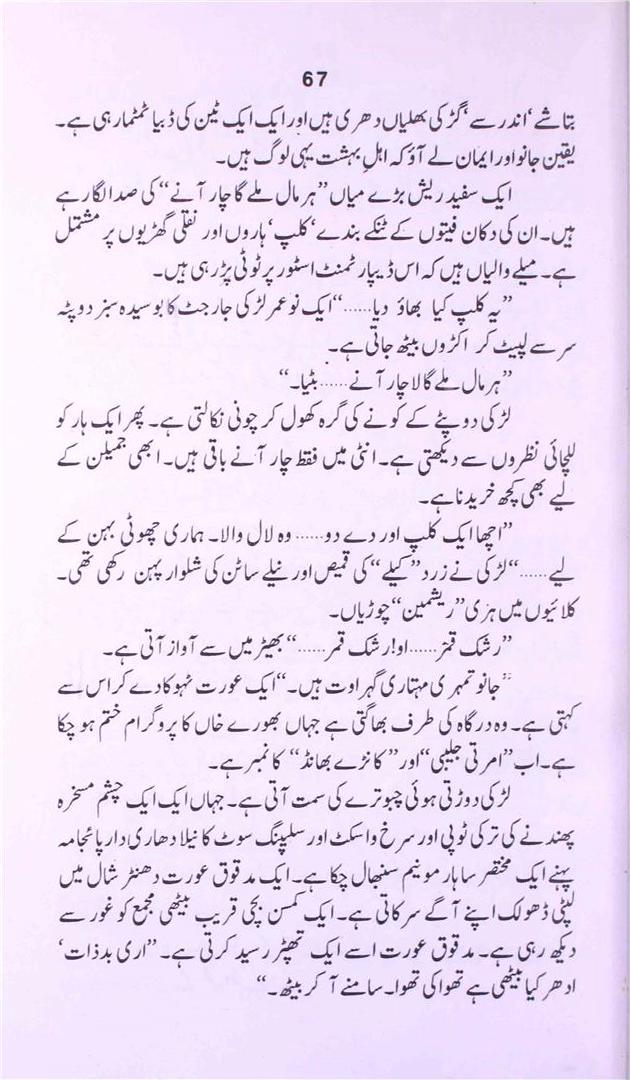 67
بتاشے‘ اندر سے‘ گڑ کی بھلیاں دھری ہیں اور ایک ایک ٹین کی ڈبیا ٹمٹما رہی ہے۔
یقین جانو اور ایمان لے آؤ کہ اہلِ بہشت یہی لوگ ہیں۔
ایک سفید ریش بڑے میاں ”ہر مال ملے گا چار آنے“ کی صدا لگا رہے
ہیں۔ ان کی دکان فیتوں کے ٹنکے بندے‘ کلپ‘ ہاروں اور نقلی گھڑیوں پر مشتمل
ہے۔ میلے والیاں ہیں کہ اس ڈیپارٹمنٹ اسٹور پر ٹوٹی پڑ رہی ہیں۔
”یہ کلپ کیا بھاؤ دیا......“ ایک نوعمر لڑکی جارجٹ کا بوسیدہ سبز دوپٹہ
سر سے لپیٹ کر اکڑوں بیٹھ جاتی ہے۔
”ہر مال ملے گا لا چار آنے...... بٹیا۔“
لڑکی دوپٹے کے کونے کی گرہ کھول کر چونی نکالتی ہے۔ پھر ایک ہار کو
للچائی نظروں سے دیکھتی ہے۔ انٹی میں فقط چار آنے باقی ہیں۔ ابھی جمیلن کے
لیے بھی کچھ خریدنا ہے۔
”اچھا ایک کلپ اور دے دو...... وہ لال والا۔ ہماری چھوٹی بہن کے
لیے......“ لڑکی نے زرد ”کیلے“ کی قمیص اور نیلے ساٹن کی شلوار پہن رکھی تھی۔
کلائیوں میں ہری ”ریشمین“ چوڑیاں۔
”رشک قمر...... او! رشک قمر......“ بھیڑ میں سے آواز آتی ہے۔
”جانو تمہری مہتاری گہراوت ہیں۔“ ایک عورت ٹہوکا دے کر اس سے
کہتی ہے۔ وہ درگاہ کی طرف بھاگتی ہے جہاں بھورے خاں کا پروگرام ختم ہو چکا
ہے۔ اب ”امرتی جلیبی“ اور ”کانڑے بھانڈ“ کا نمبر ہے۔
لڑکی دوڑتی ہوئی چبوترے کی سمت آتی ہے۔ جہاں ایک ایک چشم مسخرہ
پھندنے کی ترکی ٹوپی اور سرخ واسکٹ اور سلیپنگ سوٹ کا نیلا دھاری دار پائجامہ
پہنے ایک مختصر سا ہارمونیم سنبھال چکا ہے۔ ایک مدقوق عورت دھنتر شال میں
لپٹی ڈھولک اپنے آگے سرکاتی ہے۔ ایک کمسن بچی قریب بیٹھی مجمع کو غور سے
دیکھ رہی ہے۔ مدقوق عورت اسے ایک تھپڑ رسید کرتی ہے۔ ”اری بدذات‘
ادھر کیا بیٹھی ہے تھوا کی تھوا۔ سامنے آ کر بیٹھ۔“